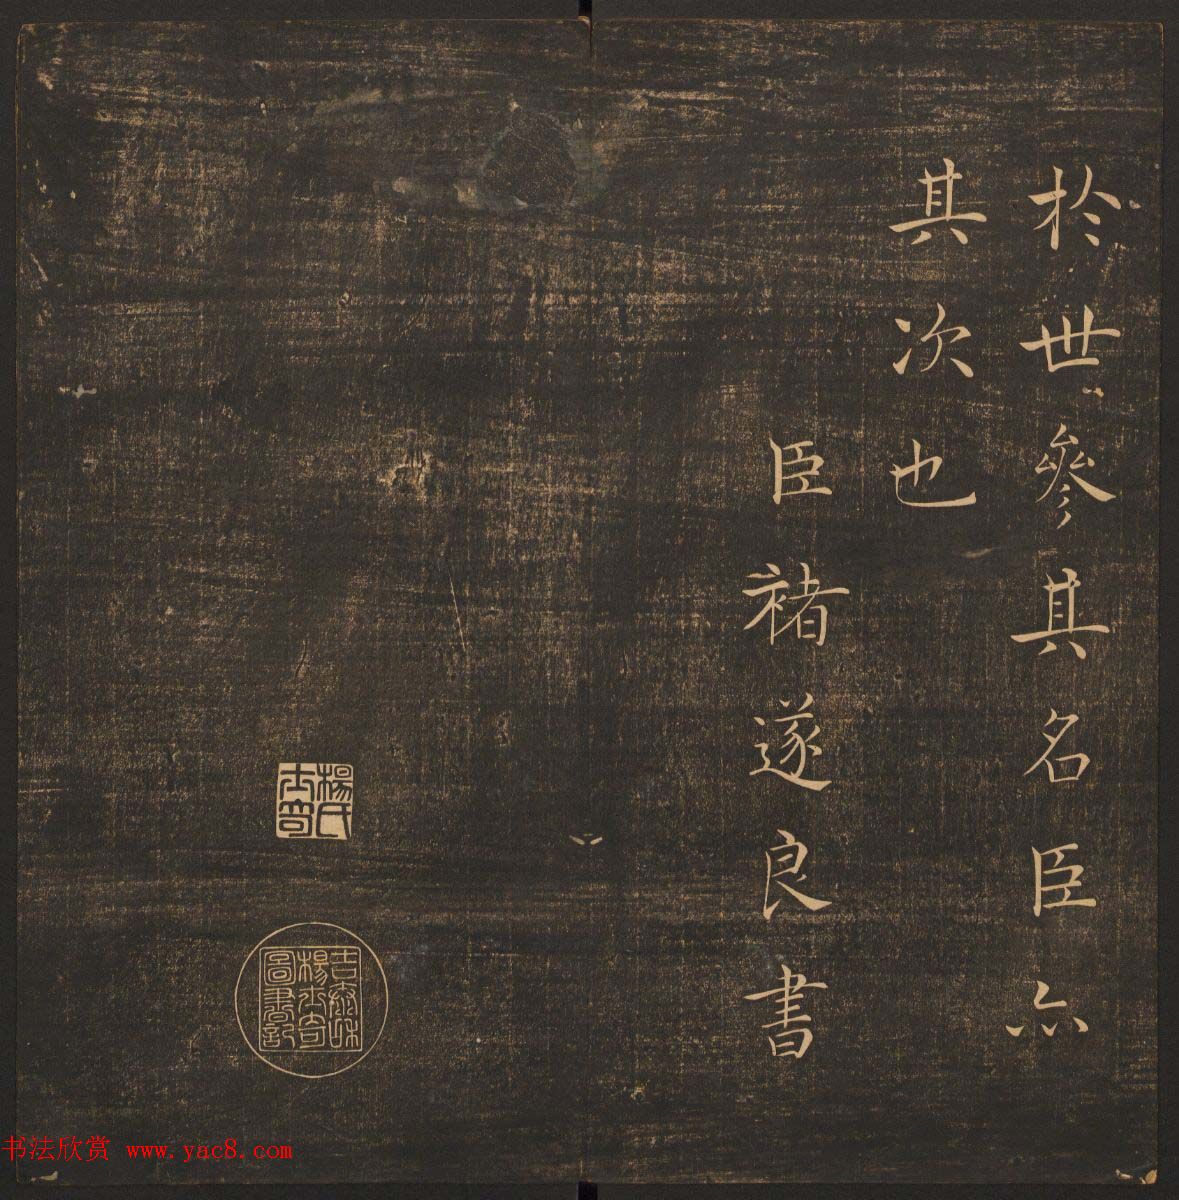 於世參其名臣亦
其次也
臣褚遂良書
楊氏
士奇
吉泰味
楊士奇
圖書記
书法欣赏 www.yac8.com